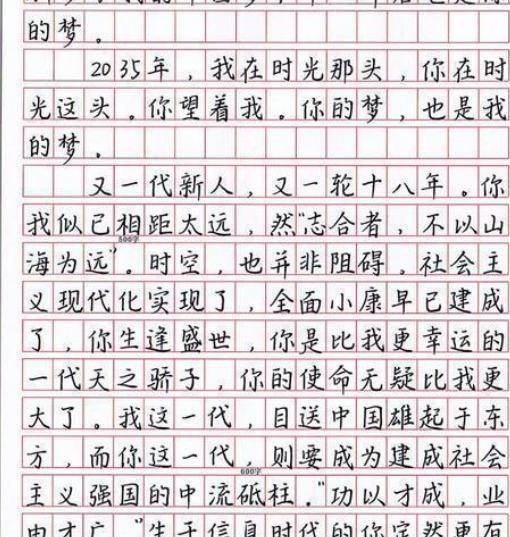 的梦。
2035年，我在时光那头，你在时
光这头。你望着我。你的梦，也是我
的梦。
又一代新人，又一轮十八年。你
我似已相距太远，然“志合者，不以山
500字
海为远”。时空，也并非阻碍。社会主
义现代化实现了，全面小康早已建成
了，你生逢盛世，你是比我更幸运的
一代天之骄子，你的使命无疑比我更
大了。我这一代，目送中国雄起于东
方，而你这一代，则要成为建成社会
600字
主义强国的中流砥柱。“功以才成，业
由才广。”生于信息时代的你定然更有